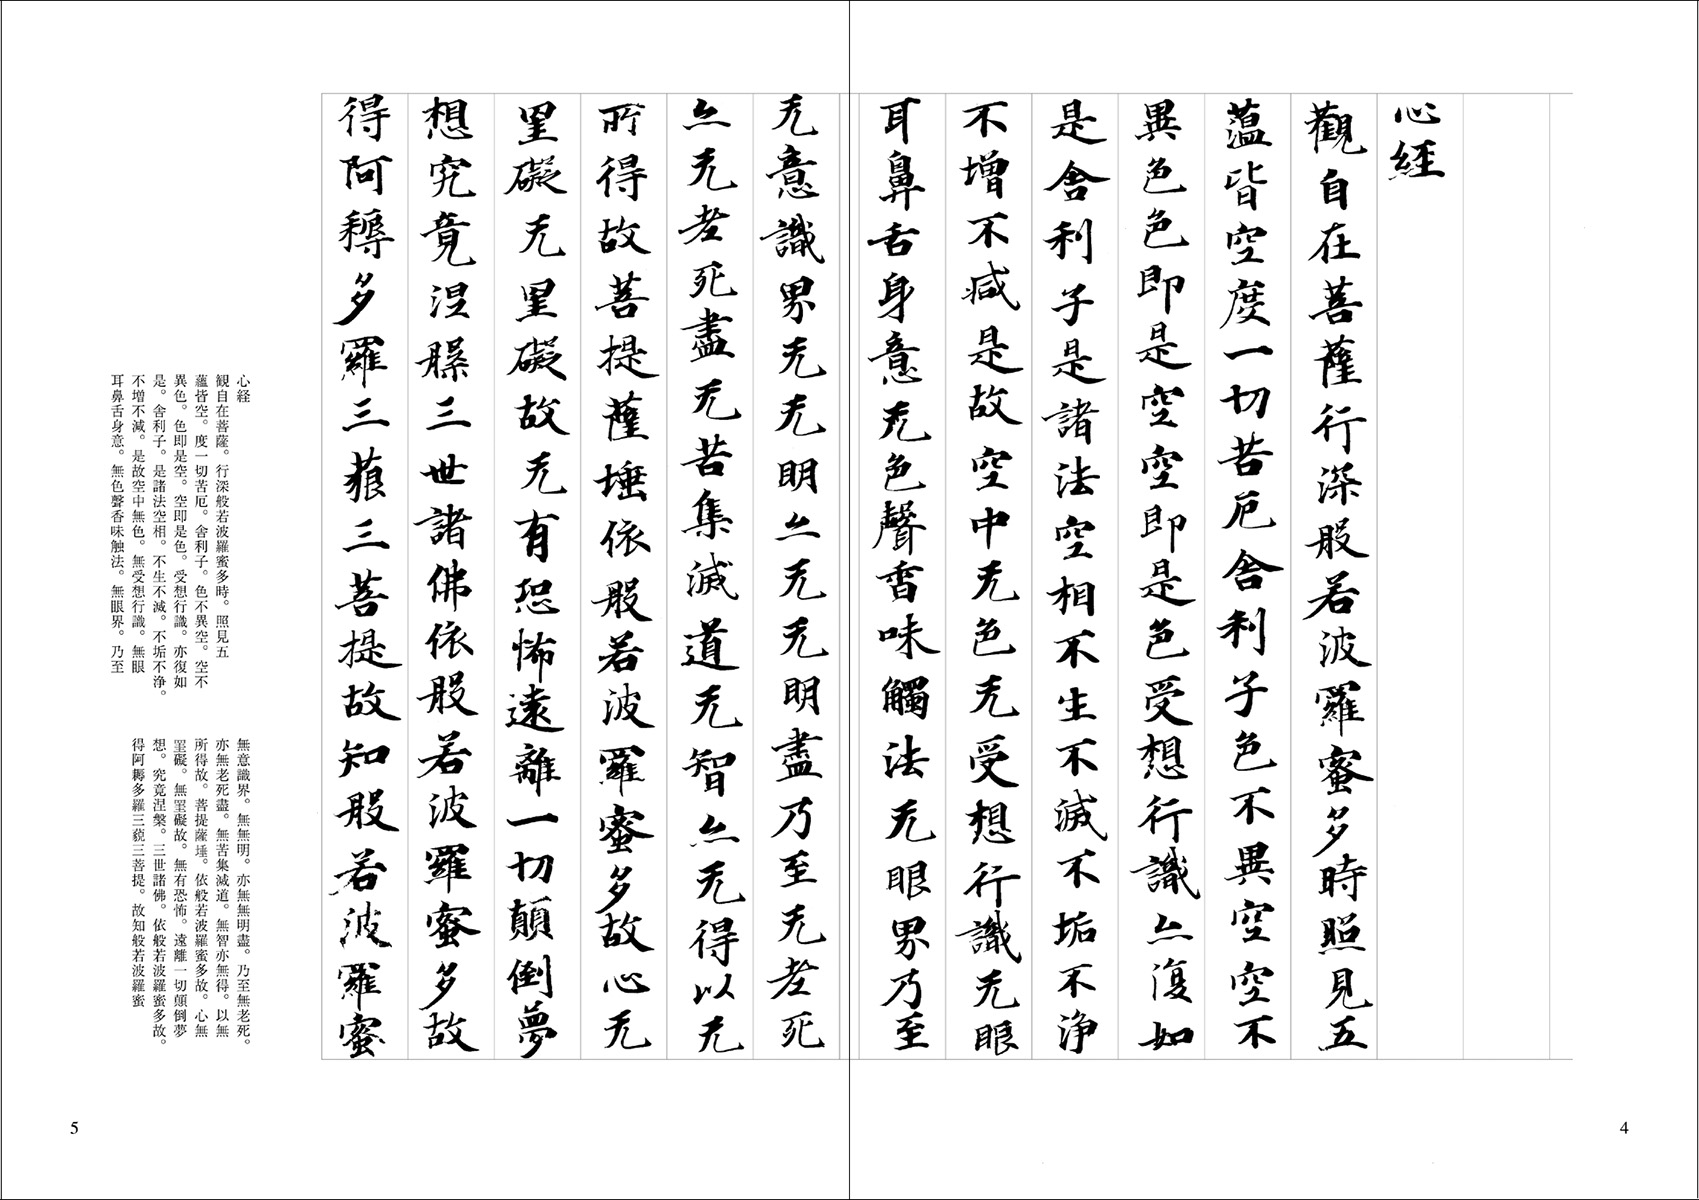 心経
觀自在菩薩行深般若波羅蜜多時照見五
蘊皆空度一切苦厄舍利子色不異空空不
異色色即是空空即是色受想行識亦復如
是舍利子是諸法空相不生不滅不垢不浄
不增不減是故空中无色无受想行識无眼
耳鼻舌身意无色聲香味觸法无眼界乃至
无意識界无无明亦无无明盡乃至无老死
亦无老死盡无苦集滅道无智亦无得以无
所得故菩提薩埵依般若波羅蜜多故心无
罣礙无罣礙故无有恐怖遠離一切顛倒夢
想究竟涅槃三世諸佛依般若波羅蜜多故
得阿耨多羅三藐三菩提故知般若波羅蜜
心経
観自在菩薩。行深般若波羅蜜多時。照見五
蘊皆空。度一切苦厄。舎利子。色不異空。空不
異色。色即是空。空即是色。受想行識。亦復如
是。舎利子。是諸法空相。不生不滅。不垢不浄。
不増不減。是故空中無色。無受想行識。無眼
耳鼻舌身意。無色聲香味触法。無眼界。乃至
無意識界。無無明。亦無無明盡。乃至無老死。
亦無老死盡。無苦集滅道。無智亦無得。以無
所得故。菩提薩埵。依般若波羅蜜多故。心無
罣礙。無罣礙故。無有恐怖。遠離一切顛倒夢
想。究竟涅槃。三世諸佛。依般若波羅蜜多故。
得阿耨多羅三藐三菩提。故知般若波羅蜜
4
5